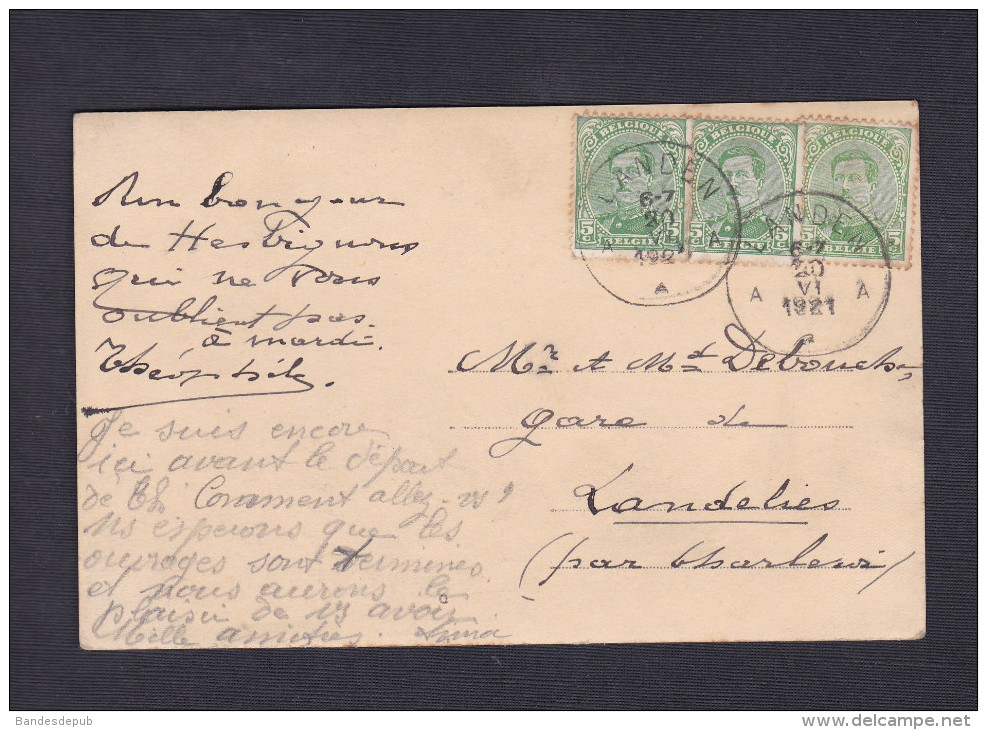 BELGIQUE
BELGIQUE
BELGIQUE
5c BELGIË 5c
BELGIË 5c
5 BELGIË 5c
LANDEN
6-7
20
VI
1921
A A
A
LANDEN
6-7
20
VI
1921
A A
Un bonjour
de Hesbignons
qui ne vous
oublient pas.
à mardi.
Théophile.
Je suis encore
ici avant le départ
de Th. Comment allez-vs?
Ns espérons que les
ouvrages sont terminés
et nous aurons le
plaisir de vs avoir
Mille amitiés.
Mr et Md Debouch
gare de
Landelies
(par Charleroi)
Bandesdepub
www.delcampe.net